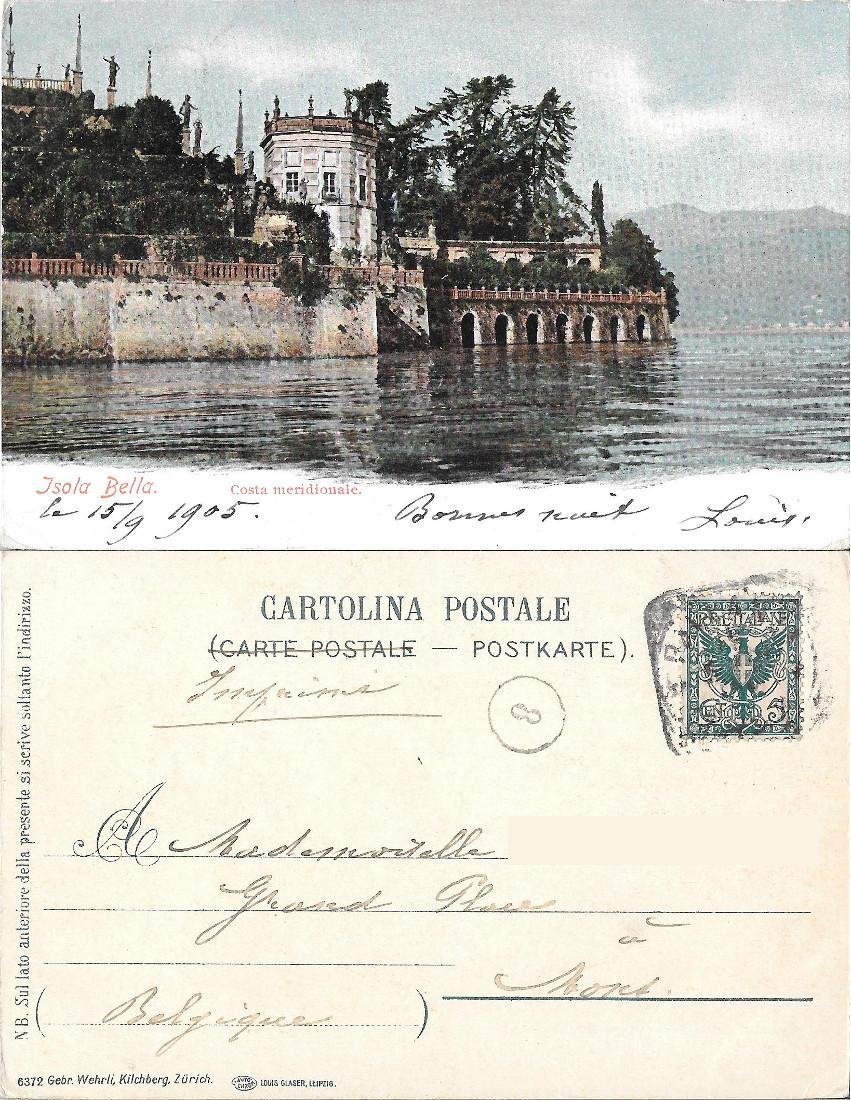 Isola Bella.
Costa meridionale.
le 15/9 1905. Bonnes nuit Louis.
CARTOLINA POSTALE
(CARTE POSTALE — POSTKARTE).
Imprimé
8
POSTE ITALIANE
CENT. 5
A Mademoiselle
Grand Place
à
Mons.
(Belgique)
NB. Sul lato anteriore della presente si scrive soltanto l'indirizzo.
6372 Gebr. Wehrli, Kilchberg, Zürich.
LOUIS GLASER, LEIPZIG.